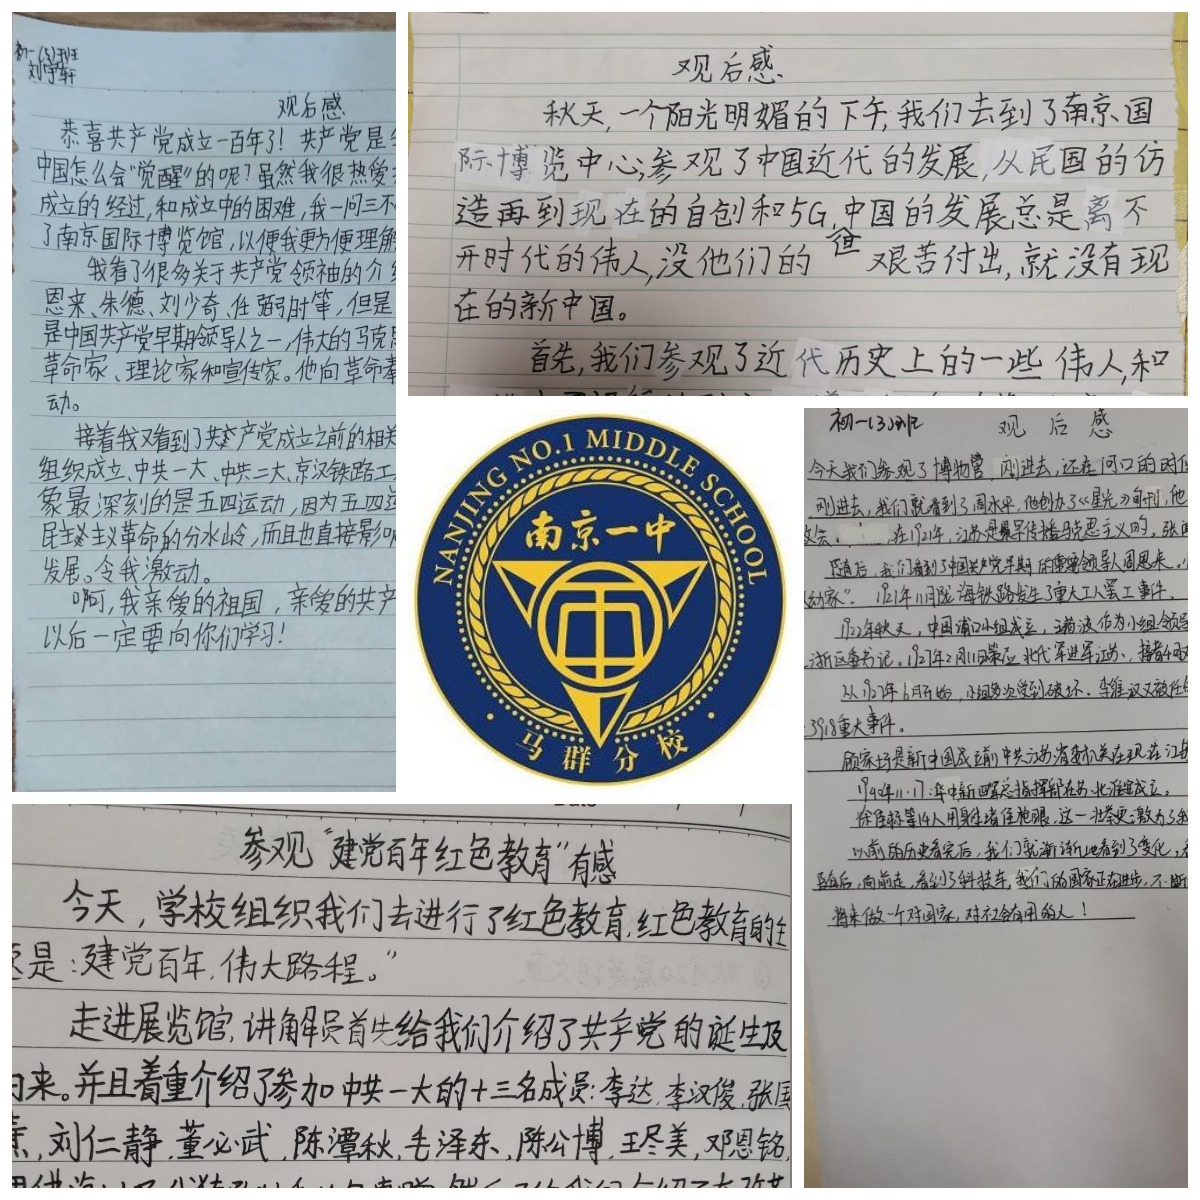 初一(5)班
刘宇轩
观后感
恭喜共产党成立一百年了！共产党是
中国怎么会“觉醒”的呢？虽然我很热爱
成立的经过,和成立中的困难,我一问三不
了南京国际博览馆,以便我更方便理解
我看了很多关于共产党领袖的介绍
恩来、朱德、刘少奇、任弼时等,但是
是中国共产党早期领导人之一,伟大的马克思
革命家、理论家和宣传家。他向革命
动。
接着我又看到了共产党成立之前的相关
组织成立、中共一大、中共二大、京汉铁路工
象最深刻的是五四运动,因为五四运
民主主义革命的分水岭,而且也直接影响
发展。令我激动。
啊,我亲爱的祖国,亲爱的共产
以后一定要向你们学习！
观后感
秋天,一个阳光明媚的下午,我们去到了南京国
际博览中心,参观了中国近代的发展,从民国的仿
造再到现在的自创和5G,中国的发展总是离不
开时代的伟人,没他们的 艰苦付出,就没有现
在的新中国。
首先,我们参观了近代历史上的一些伟人,和
NANJING NO.1 MIDDLE SCHOOL
南京一中
马群分校
初一(3)班
观后感
今天我们参观了博物馆 刚进去,还在门口的时候
刚进去,我们就看到了周水平,他创办了《星光》旬刊,他
在1921年,江苏是最早传播马克思主义的,张闻
随后,我们看到了中国共产党早期的重要领导人周恩来。
动家”。1921年11月陇海铁路发生了重大工人罢工事件。
1922年秋天,中国浦口小组成立,王荷波作为小组领导
浙区委书记。1927年2月11日 北伐军进军江苏、接着
从1927年6月开始,小组多次受到破坏。李维汉又被任
重大事件。
顾家圩是新中国成立前中共江苏省委机关在现在江苏
华中新四军总指挥部在苏北淮安成立。
徐佳标等14人用身体堵住枪眼,这一壮举更激励了
以前的历史看完后,我们就渐渐地看到了变化,
随后,向前走,看到了科技车,我们的国家正在进步,不断
将来做一个对国家,对社会有用的人！
Date
参观“建党百年红色教育”有感
今天,学校组织我们去进行了红色教育,红色教育的主
题是:建党百年,伟大路程。”
走进展览馆,讲解员首先给我们介绍了共产党的诞生及
由来。并且着重介绍了参加中共一大的十三名成员:李达,李汉俊,张国
焘,刘仁静,董必武,陈潭秋,毛泽东,陈公博,王尽美,邓恩铭,